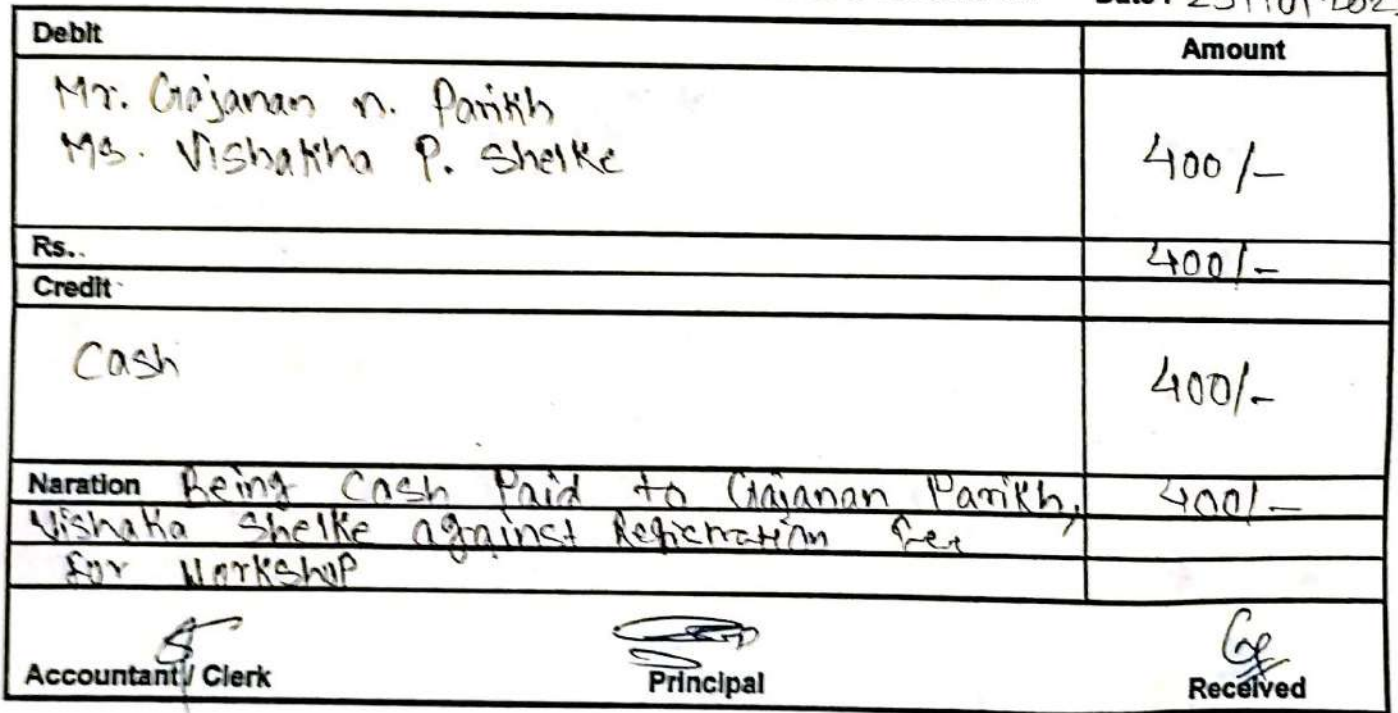 Debit Amount
Mr. Gajanan n. Parikh
Ms. Vishakha P. Shelke 400/-
Rs.. 400/-
Credit
Cash 400/-
Naration Being Cash Paid to Gajanan Parikh, 400/-
Vishaka Shelke against Fee
for Workshop
Accountant / Clerk Principal Received